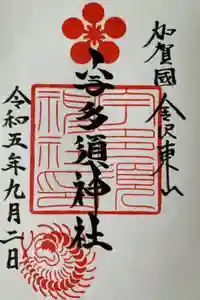 加賀國金沢東山
宇多須神社
令和五年九月二日